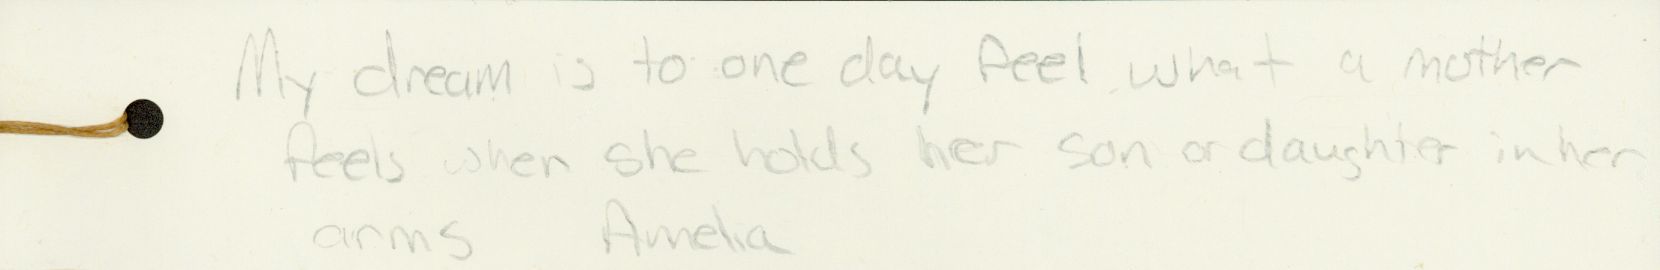 My dream is to one day feel what a mother
feels when she holds her son or daughter in her
arms Amelia